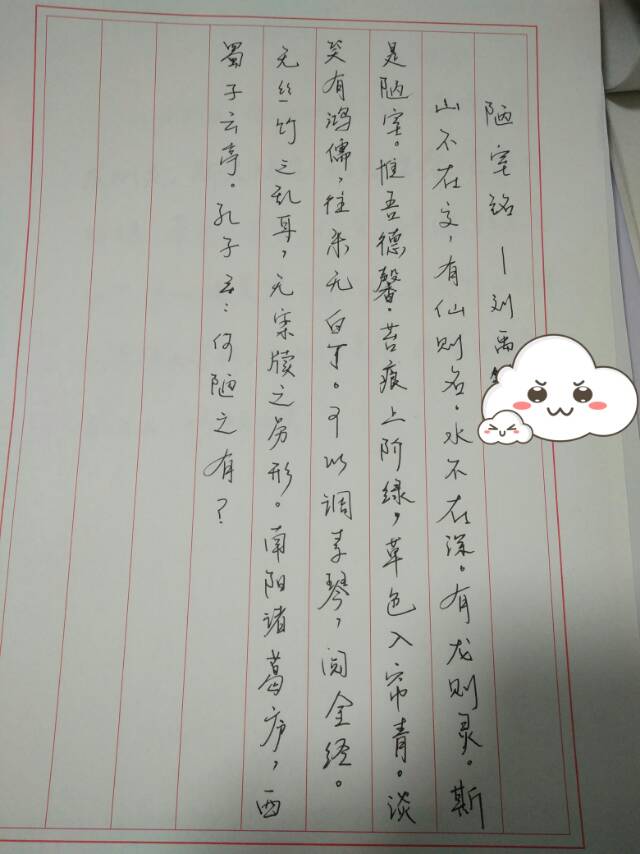 陋室铭 — 刘禹
山不在文，有仙则名。水不在深。有龙则灵。斯
是陋室。惟吾德馨。苔痕上阶绿，草色入帘青。谈
笑有鸿儒，往来无白丁。可以调素琴，阅金经。
无丝竹之乱耳，无案牍之劳形。南阳诸葛庐，西
蜀子云亭。孔子云：何陋之有？